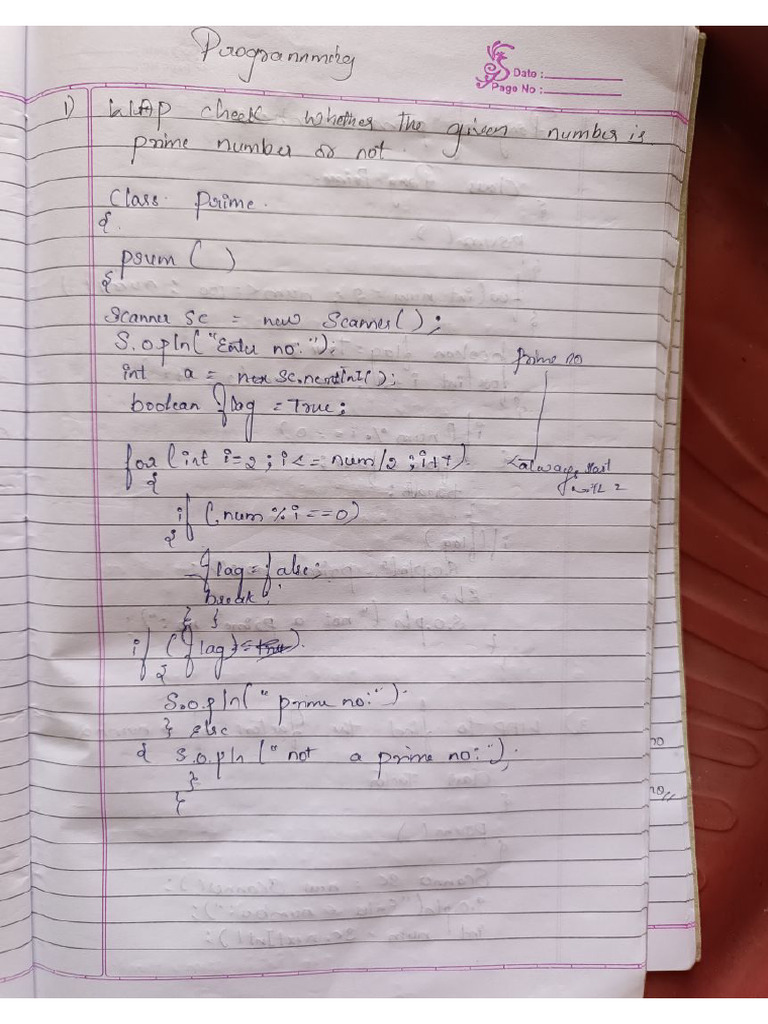 Programming
Date :
Page No :
1) WAP check whether the given number is
prime number or not.
Class Prime.
{.
psvm ( )
{
Scanner Sc = new Scanner( );
S.o.pln( "Enter no:");
prime no
int a = Sc.nextInt( );
boolean flag = True;
for (int i=2 ; i <= num/2 ; i++)
<always start
with 2
{
if ( num % i == 0)
{
flag = false;
break;
} }
if (flag)
{
S.o.pln( " prime no:")
} else
{ S.o.pln ( " not a prime no:");
}
}
no
no,,